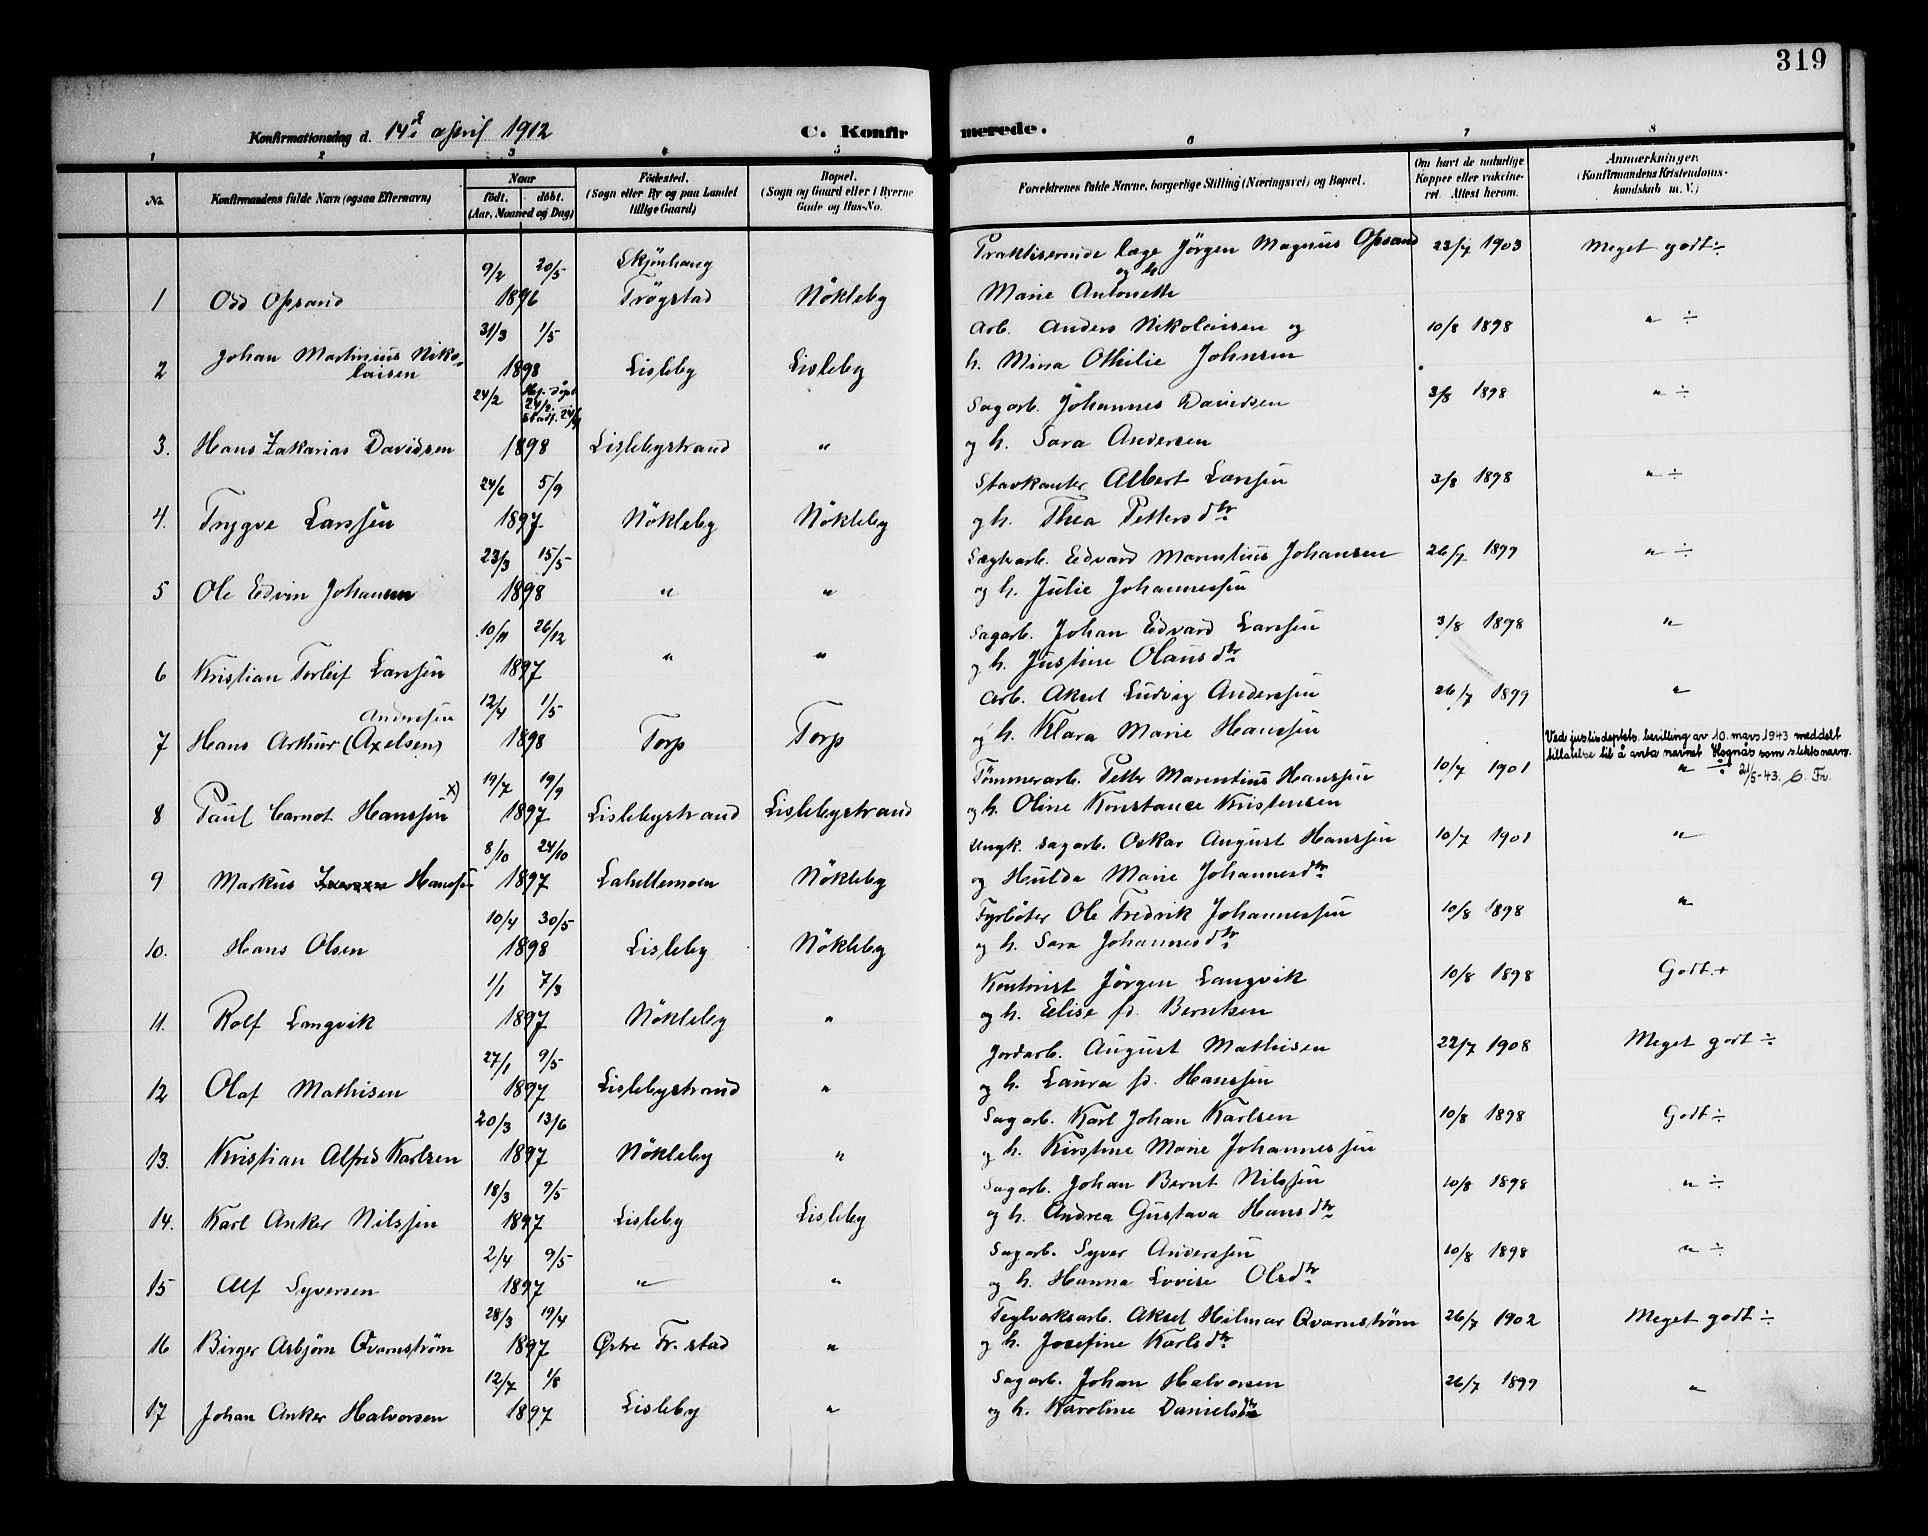 319
Konfirmationsdag d. 14de april 1912
C. Konfirmerede.
1 2 3 4 5 6 7 8
No.
Konfirmandens fulde Navn (ogsaa Efternavn)
Naar
födt. döbt.
(Aar, Maaned og Dag)
Födested.
(Sogn eller By og paa Landet tillige Gaard)
Bopæl.
(Sogn og Gaard eller i Byerne Gade og Hus-No.
Forældrenes fulde Navne, borgerlige Stilling (Næringsvei) og Bopæl.
Om havt de naturlige Kopper eller vakcineret. Attest herom.
Anmærkninger.
(Konfirmandens Kristendomskundskab m. V.)
1 Odd Opsand 9/2 20/5 1896 Skjönhaug Trögstad Nökleby
Praktiserende læge Jörgen Magnus Opsand og h. Marie Antonette 23/7 1903 Meget godt ÷
2 Johan Martinius Nikolaisen 31/3 1/5 1898 Lisleby Lisleby
Arb. Anders Nikolaisen og h. Mina Othilie Johnsen 10/8 1898 " ÷
3. Hans Zakarias Davidsen 24/2 Hj. döpt 24/2 stadf. 24/4 1898 Lislebystrand "
Sagarb. Johannes Davidsen og h. Sara Andersen 3/8 1898 " ÷
4. Trygve Larssen 24/6 5/9 1897 Nökleby Nökleby
Stavkanter Albert Larssen og h. Thea Pettersdtr 3/8 1898 " ÷
5 Ole Edvin Johansen 23/3 15/5 1898 " "
Edvard Marentius Johansen og h. Julie Johannessen 26/7 1899 " ÷
6 Kristian Torleif Larssen 10/11 26/12 1897 " "
Sagarb. Johan Edvard Larssen og h. Justine Olausdtr 3/8 1898 "
7 Hans Arthur (Axelsen) Anderssen 12/4 1/5 1898 Torp Torp
Arb. Aksel Ludvig Anderssen og h. Klara Marie Hanssen 26/7 1899 "
8 Paul Carnot Hanssen x) 19/7 19/9 1897 Lislebystrand Lislebystrand
Tömmerarb. Petter Marentius Hanssen og h. Oline Konstance Kristensen 10/7 1901 " ÷
Ved justisdeptets. bevilling av 10. mars 1943 meddelt
tillatelse til å anta navnet Hognås som slektsnavn.
21/5-43. C. Fr.
9 Markus Hanssen 8/10 24/10 1897 Lahellemoen Nökleby
Ungk. sagarb. Oskar August Hanssen og Hulda Marie Johannesdtr 10/7 1901 "
10. Hans Olsen 10/4 30/5 1898 Lisleby Nökleby
Fyrböter Ole Fredrik Johannessen og h. Sara Johannesdtr 10/8 1898 "
11. Rolf Langvik 1/1 7/3 1897 Nökleby "
Kontorist Jörgen Langvik og h. Elise fd. Berntsen 10/8 1898 Godt +
12 Olaf Mathisen 27/1 9/5 1897 Lislebystrand "
Jordarb. August Mathisen og h. Laura fd. Hanssen 22/7 1908 Meget godt ÷
13. Kristian Alfred Karlsen 20/3 13/6 1897 Nökleby "
Sagarb. Karl Johan Karlsen og h. Kirstine Marie Johannessen 10/8 1898 Godt ÷
14. Karl Anker Nilssen 18/3 9/5 1897 Lisleby Lisleby
Sagarb. Johan Bernt Nilssen og h. Andrea Gustava Hansdtr 10/8 1898 " ÷
15 Alf Syversen 2/4 9/5 1897 " "
Sagarb. Syver Anderssen og h. Hanna Lovise Olsdtr 10/8 1898 " ÷
16 Birger Asbjørn Qvarnstrøm 28/3 19/4 1897 Østre Fr.stad "
Teglverksarb. Aksel Hilmar Qvarnstrøm og h. Josefine Karlsdtr 26/7 1902 Meget godt ÷
17 Johan Anker Halvorsen 12/7 1/8 1897 Lisleby "
Sagarb. Johan Halvorsen og h. Karoline Danielsdtr 26/7 1899 "